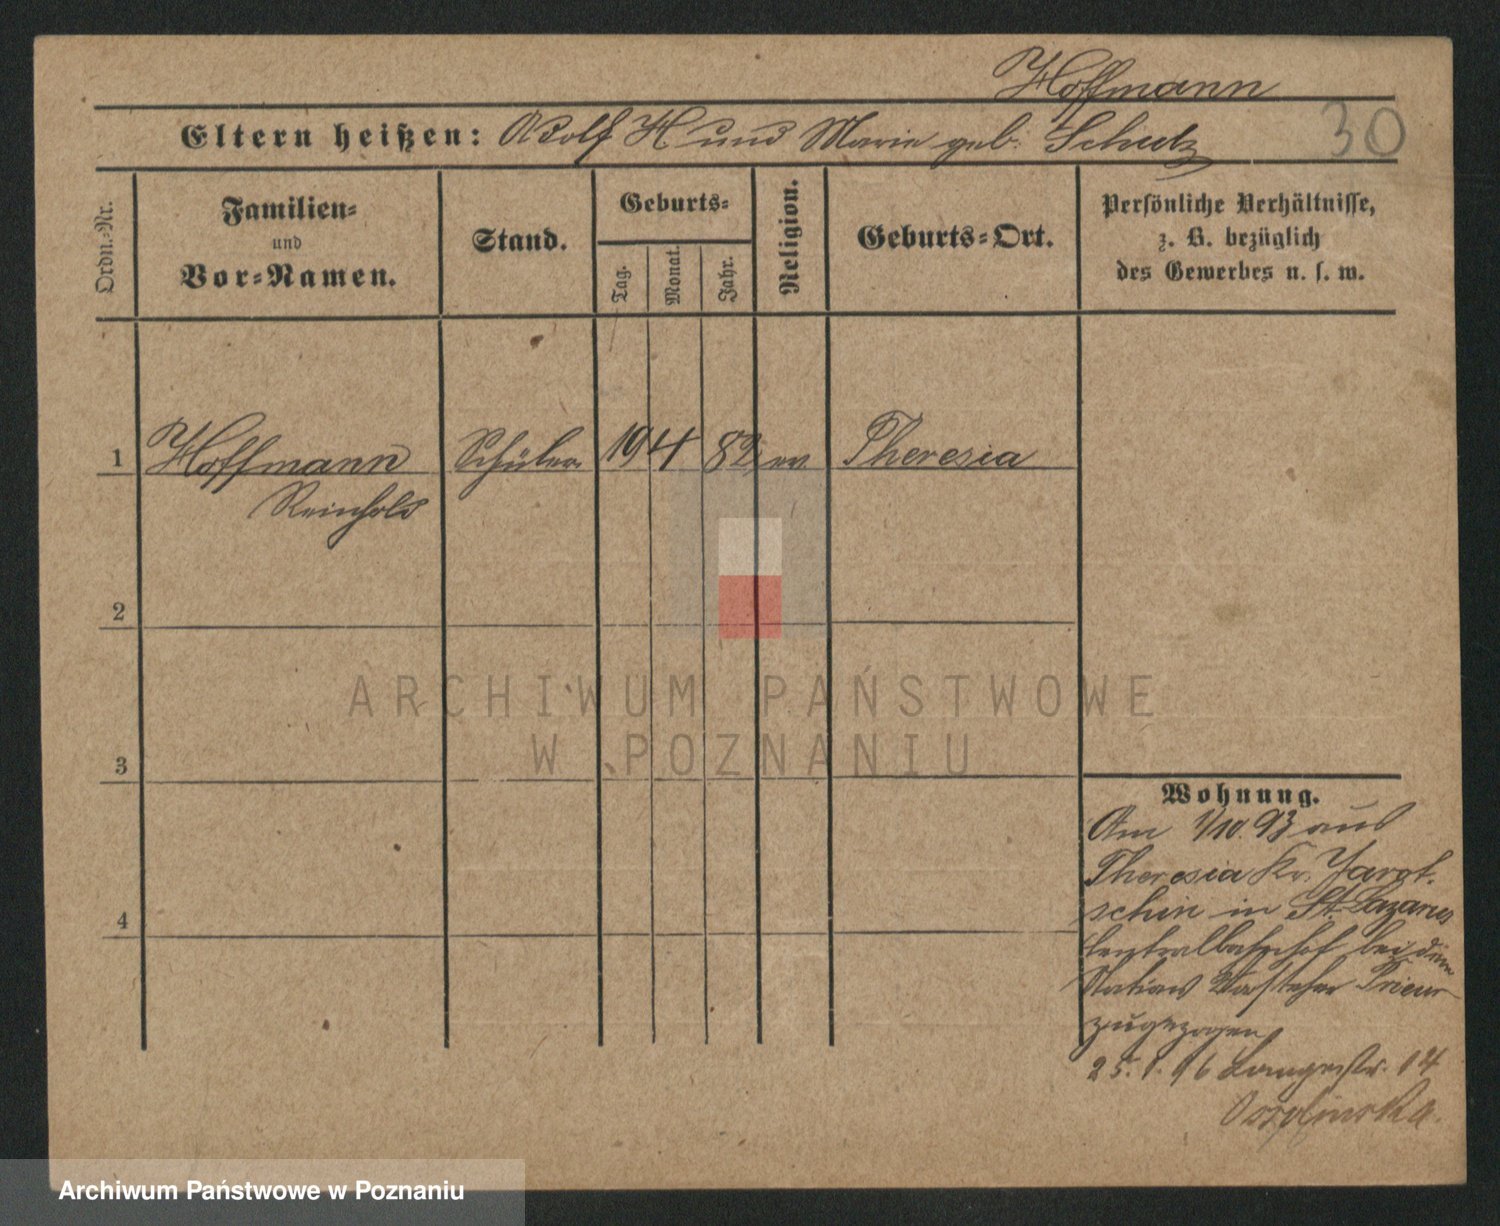 Hoffmann
Eltern heißen: Adolf H und Marie geb. Schulz
30
Ordn.-Nr.
Familien-
und
Vor-Namen.
Stand.
Geburts-
Tag.
Monat.
Jahr.
Religion.
Geburts-Ort.
Persönliche Verhältnisse,
z. B. bezüglich
des Gewerbes u. s. w.
1 Hoffmann Schüler 19 4 82 ev Theresia
Reinhold
2
3
4
ARCHIWUM PAŃSTWOWE
W POZNANIU
Wohnung.
Am 1/10. 93 aus
Theresia Kr. Jarot-
schin in St. Lazarus
Centralbahnhof bei dem
Stations Vorsteher
zugezogen
25. 1. 96 Langestr. 14
Archiwum Państwowe w Poznaniu